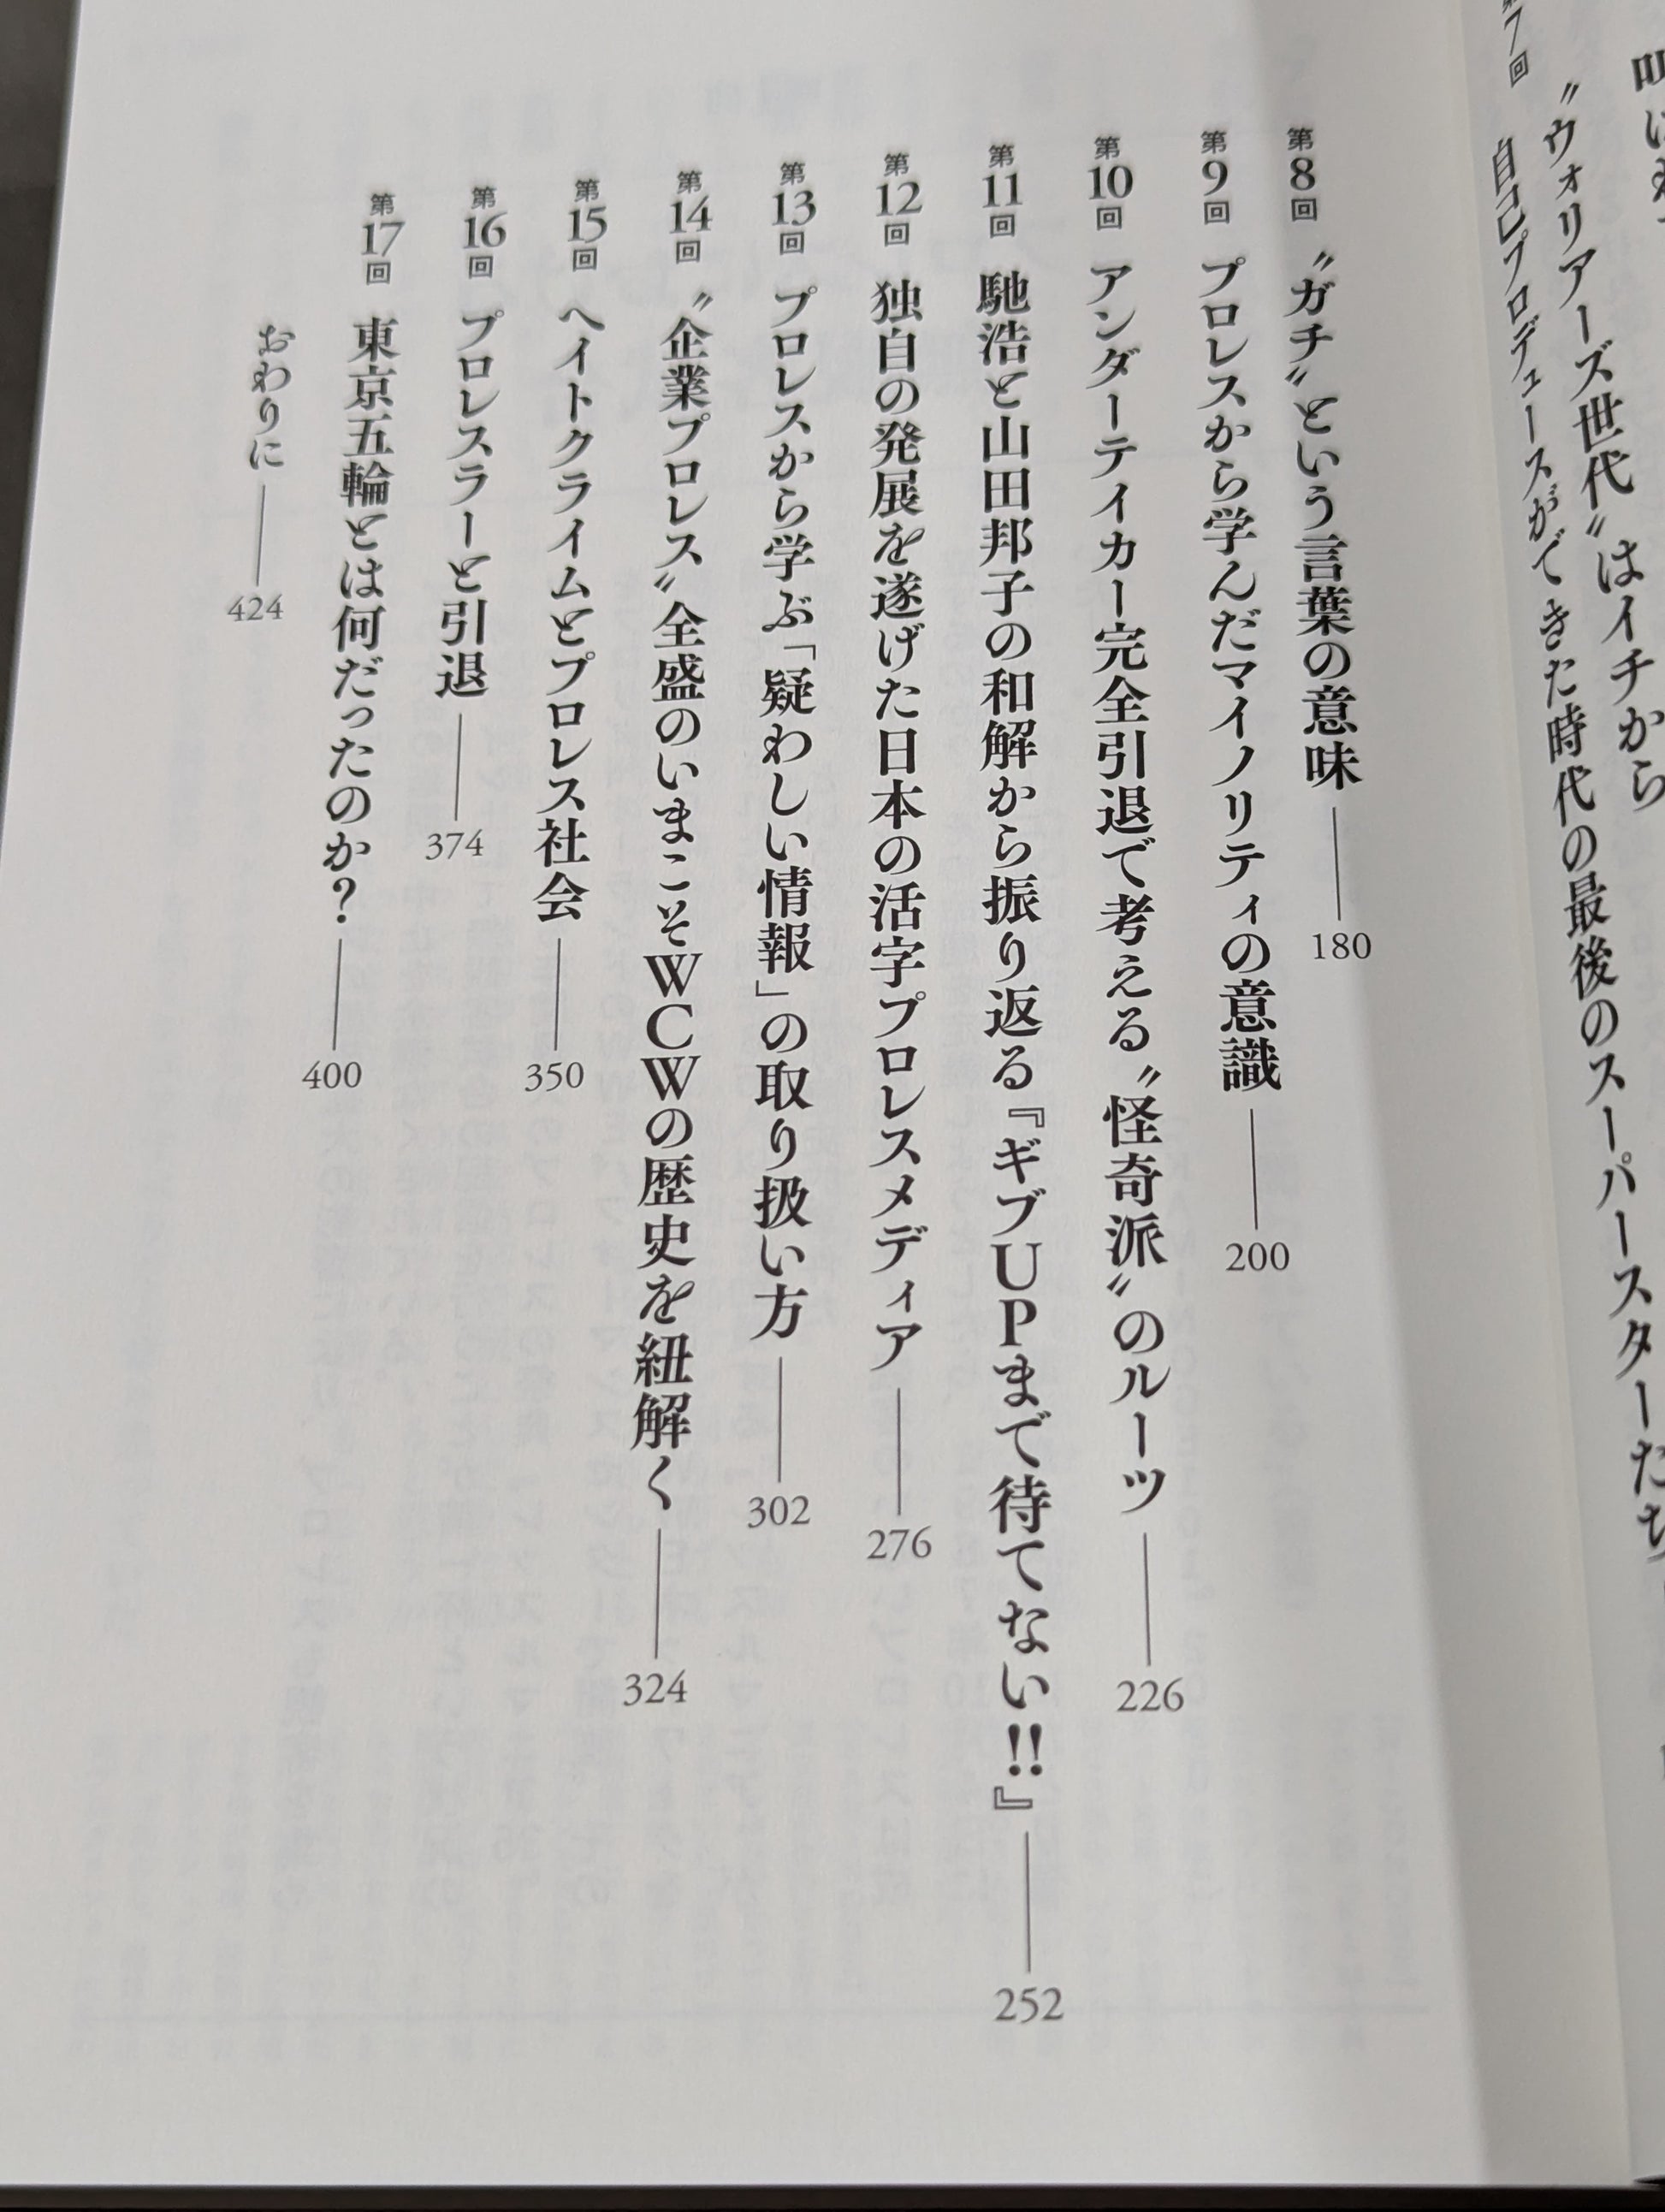 〝ウォリアーズ世代〟はイチから
第7回 自己プロデュースができた時代の最後のスーパースターたち
第8回 〝ガチ〟という言葉の意味 180
第9回 プロレスから学んだマイノリティの意識 200
第10回 アンダーテイカー完全引退で考える〝怪奇派〟のルーツ 226
第11回 馳浩と山田邦子の和解から振り返る『ギブUPまで待てない!!』 252
第12回 独自の発展を遂げた日本の活字プロレスメディア 276
第13回 プロレスから学ぶ「疑わしい情報」の取り扱い方 302
第14回 〝企業プロレス〟全盛のいまこそWCWの歴史を紐解く 324
第15回 ヘイトクライムとプロレス社会 350
第16回 プロレスラーと引退 374
第17回 東京五輪とは何だったのか? 400
おわりに 424